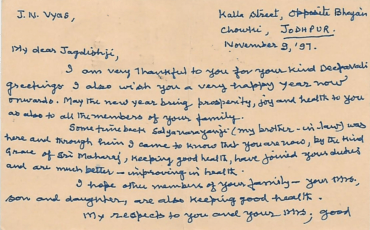 J.N. Vyas,
Kalla Street, Opposite
Chowki, JODHPUR.
November 3, '97.
My dear Jagdishji,
I am very thankful to you for your kind Deepavali
greetings I also wish you a very happy year now
onwards. May the new year bring prosperity, joy and health to you
as also to all the members of your family.
Sometime back Satyanarayanji (my brother-in-law) was
here and through him I came to know that you are now, by the kind
Grace of Sri Maharaj, keeping good health, have joined your duties
and are much better - improving in health.
I hope other members of your family - your Mrs,
son and daughter, are also keeping good health.
My respects to you and your Mrs; good